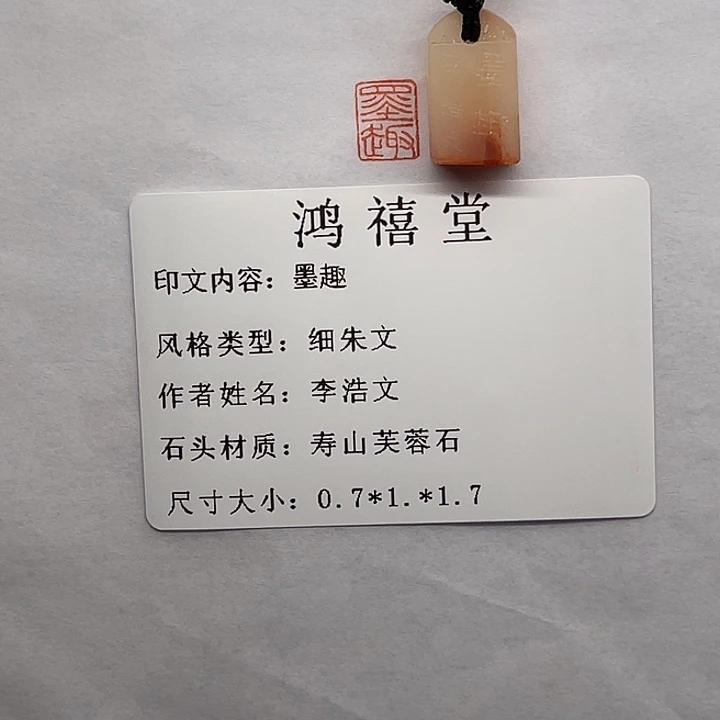 墨趣
鸿禧堂
印文内容：墨趣
风格类型：细朱文
作者姓名：李浩文
石头材质：寿山芙蓉石
尺寸大小：0.7*1.*1.7